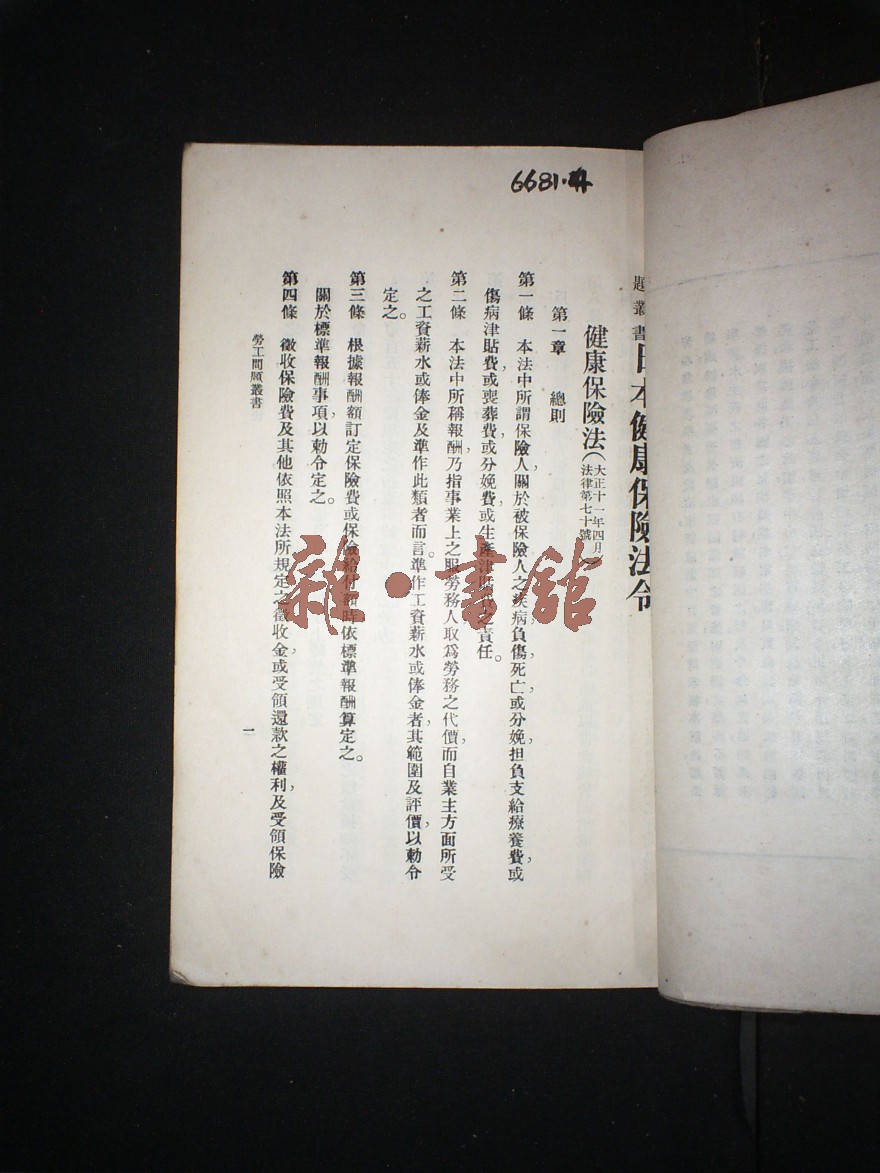 6681.4
題叢書日本健康保險法令
健康保險法(大正十一年四月
法律第七十號)
第一章 總則
第一條 本法中所謂保險人,關於被保險人之疾病,負傷,死亡或分娩,担負支給療養費,或
傷病津貼費,或喪葬費,或分娩費,或生產津貼費之責任。
第二條 本法中所稱報酬,乃指事業上之服勞務人取爲勞務之代價,而自業主方面所受
之工資薪水或俸金及準作此類者而言。準作工資薪水或俸金者,其範圍及評價,以勅令
定之。
第三條 根據報酬額訂定保險費或保險給付額時依標準報酬算定之。
關於標準報酬事項,以勅令定之。
第四條 徵收保險費及其他依照本法所規定之徵收金,或受領還款之權利,及受領保險
勞工問題叢書
一
雜·書館